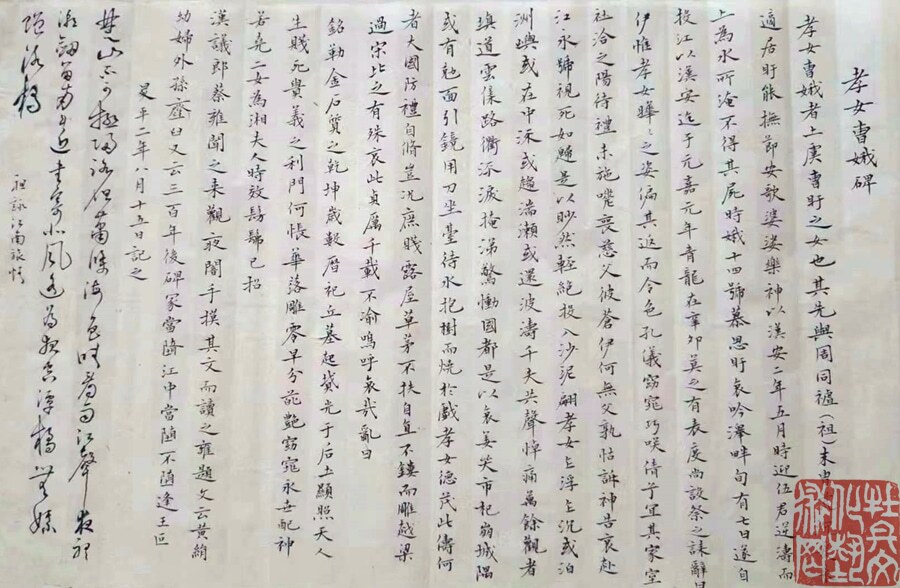 孝女曹娥碑
孝女曹娥者上虞曹盱之女也其先與周同禠(祖)末
適居盱能撫節安歌婆娑樂神以漢安二年五月時迎伍君逆濤而
上為水所淹不得其屍時娥十四號慕思盱哀吟澤畔旬有七日遂自
投江以漢安迄于元嘉元年青龍在辛卯莫之有表度尚設祭之誄辭
伊惟孝女曄之姿偏其返而令色孔儀窈窕巧咲倩兮宜其家室
在洽之陽待禮未施嗟喪慈父彼蒼伊何無父孰怙訴神告哀赴
江永號視死如歸是以眇然輕絕投入沙泥翩孝女乍浮乍沉或泊
洲嶼或在中流或趨湍瀨或還波濤千夫共聲悼痛萬餘觀者
填道雲集路衢流淚掩涕驚慟國都是以哀姜哭市杞崩城隅
或有勉面引鏡用刀坐臺待水抱樹而燒於戲孝女德茂此儔何
者大國防禮自脩豈況庶賤露屋草茅不扶自直不鏤而雕越梁
過宋比之有殊哀此貞厲千載不渝嗚呼哀哉亂曰
銘勒金石質之乾坤歲數曆祀丘墓起墳光于后土顯照天人
生賤死貴義之利門何悵華落雕零早分葩艷窈窕永世配神
若堯二女為湘夫人時效髣髴已招
漢議郎蔡雍聞之來觀夜闇手摸其文而讀之雍題文云黃絹
幼婦外孫齏臼又云三百年後碑冢當墮江中當墮不墮逢王叵
昇平二年八月十五日記之
楚山不可極歸路但蕭條海色晴看雨江聲夜
湘南近書寄北風遙為報空潭橘無媒
洛橋
祖詠江南旅情